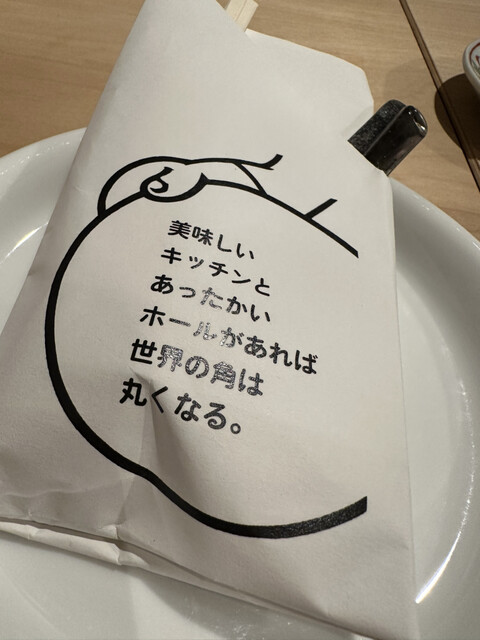 美味しい
キッチンと
あったかい
ホールがあれば
世界の角は
丸くなる。